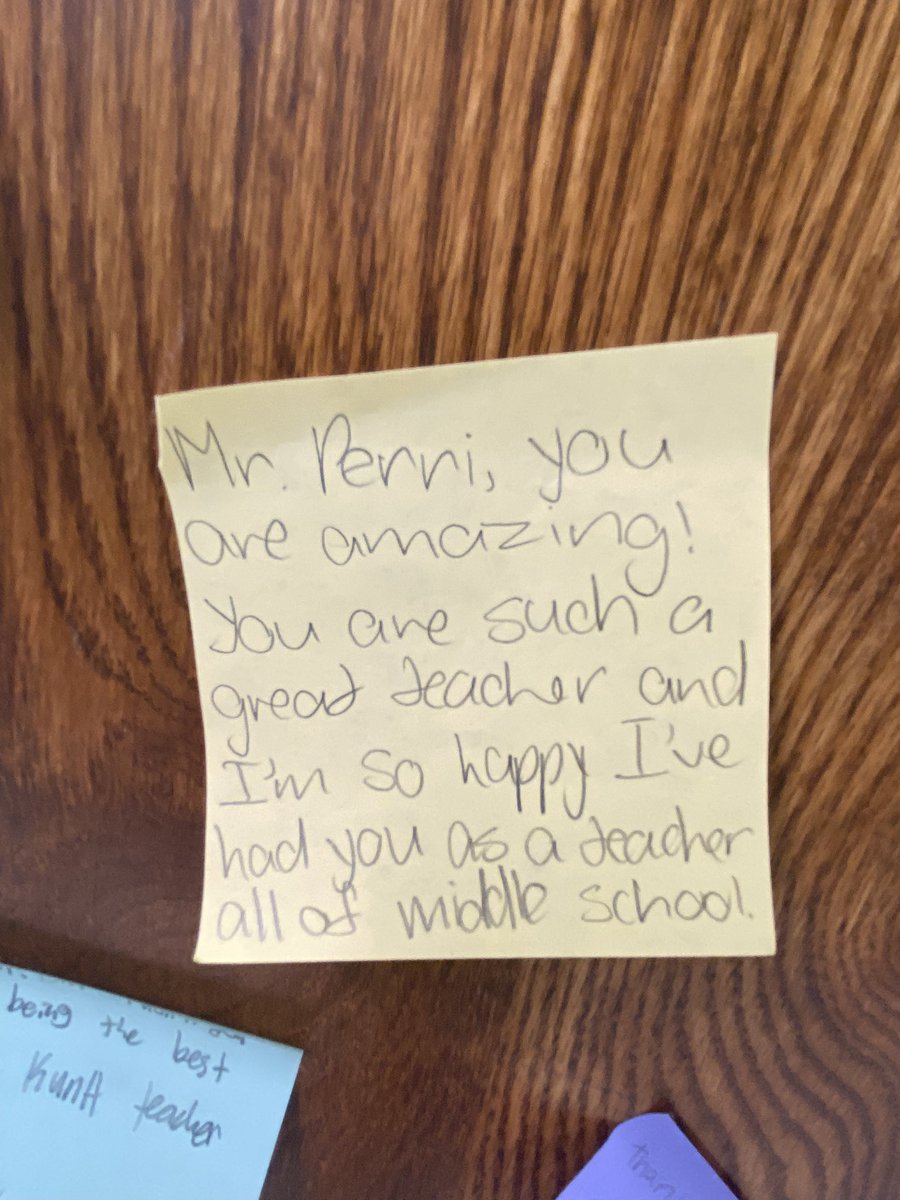 Mr. Perri, you
are amazing!
You are such a
great teacher and
I'm so happy I've
had you as a teacher
all of middle school.
being the best
teacher